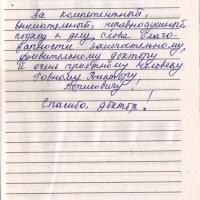 За компетентный,
внимательный, неравнодушный
подход к делу, слова благо-
дарности замечательному,
удивительному доктору
и очень приятному человеку
Виктору
Борисовичу!
Спасибо, доктор!